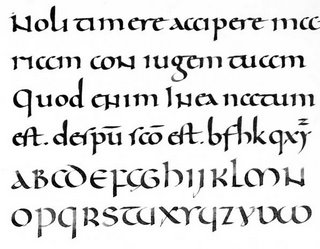 Noli timere accipere ma
riam con iugem tuam
Quod enim in ea natum
est. despū scō est. bfhkqxyz
abcdefghijklmn
opqrstuxyyzvw